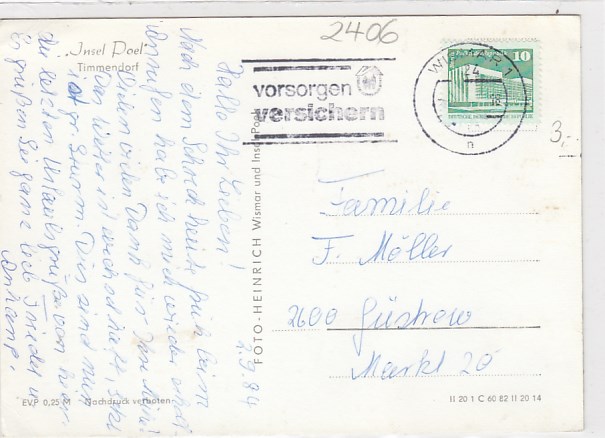 2406
„Insel Poel"
Timmendorf
vorsorgen
versichern
WISMAR 1
24
18
n
10
DEUTSCHE DEMOKRATISCHE REPUBLIK
3,-
Familie
F. Möller
2600 Güstrow
Markt 20
FOTO-HEINRICH Wismar und Insel Poel
2.9.84
Hallo Ihr Lieben!
Nach dem Schreck heute früh beim
habe ich mich wieder
Vielen vielen Dank für Ihre Mühe!
Das Wetter ist auch
ist Sturm. Dies sind nun
die letzten Urlaubsgrüße von hier.
Es grüßen Sie ganz lieb
EVP 0,25 M Nachdruck verboten
II 20 1 C 60 82 II 20 14